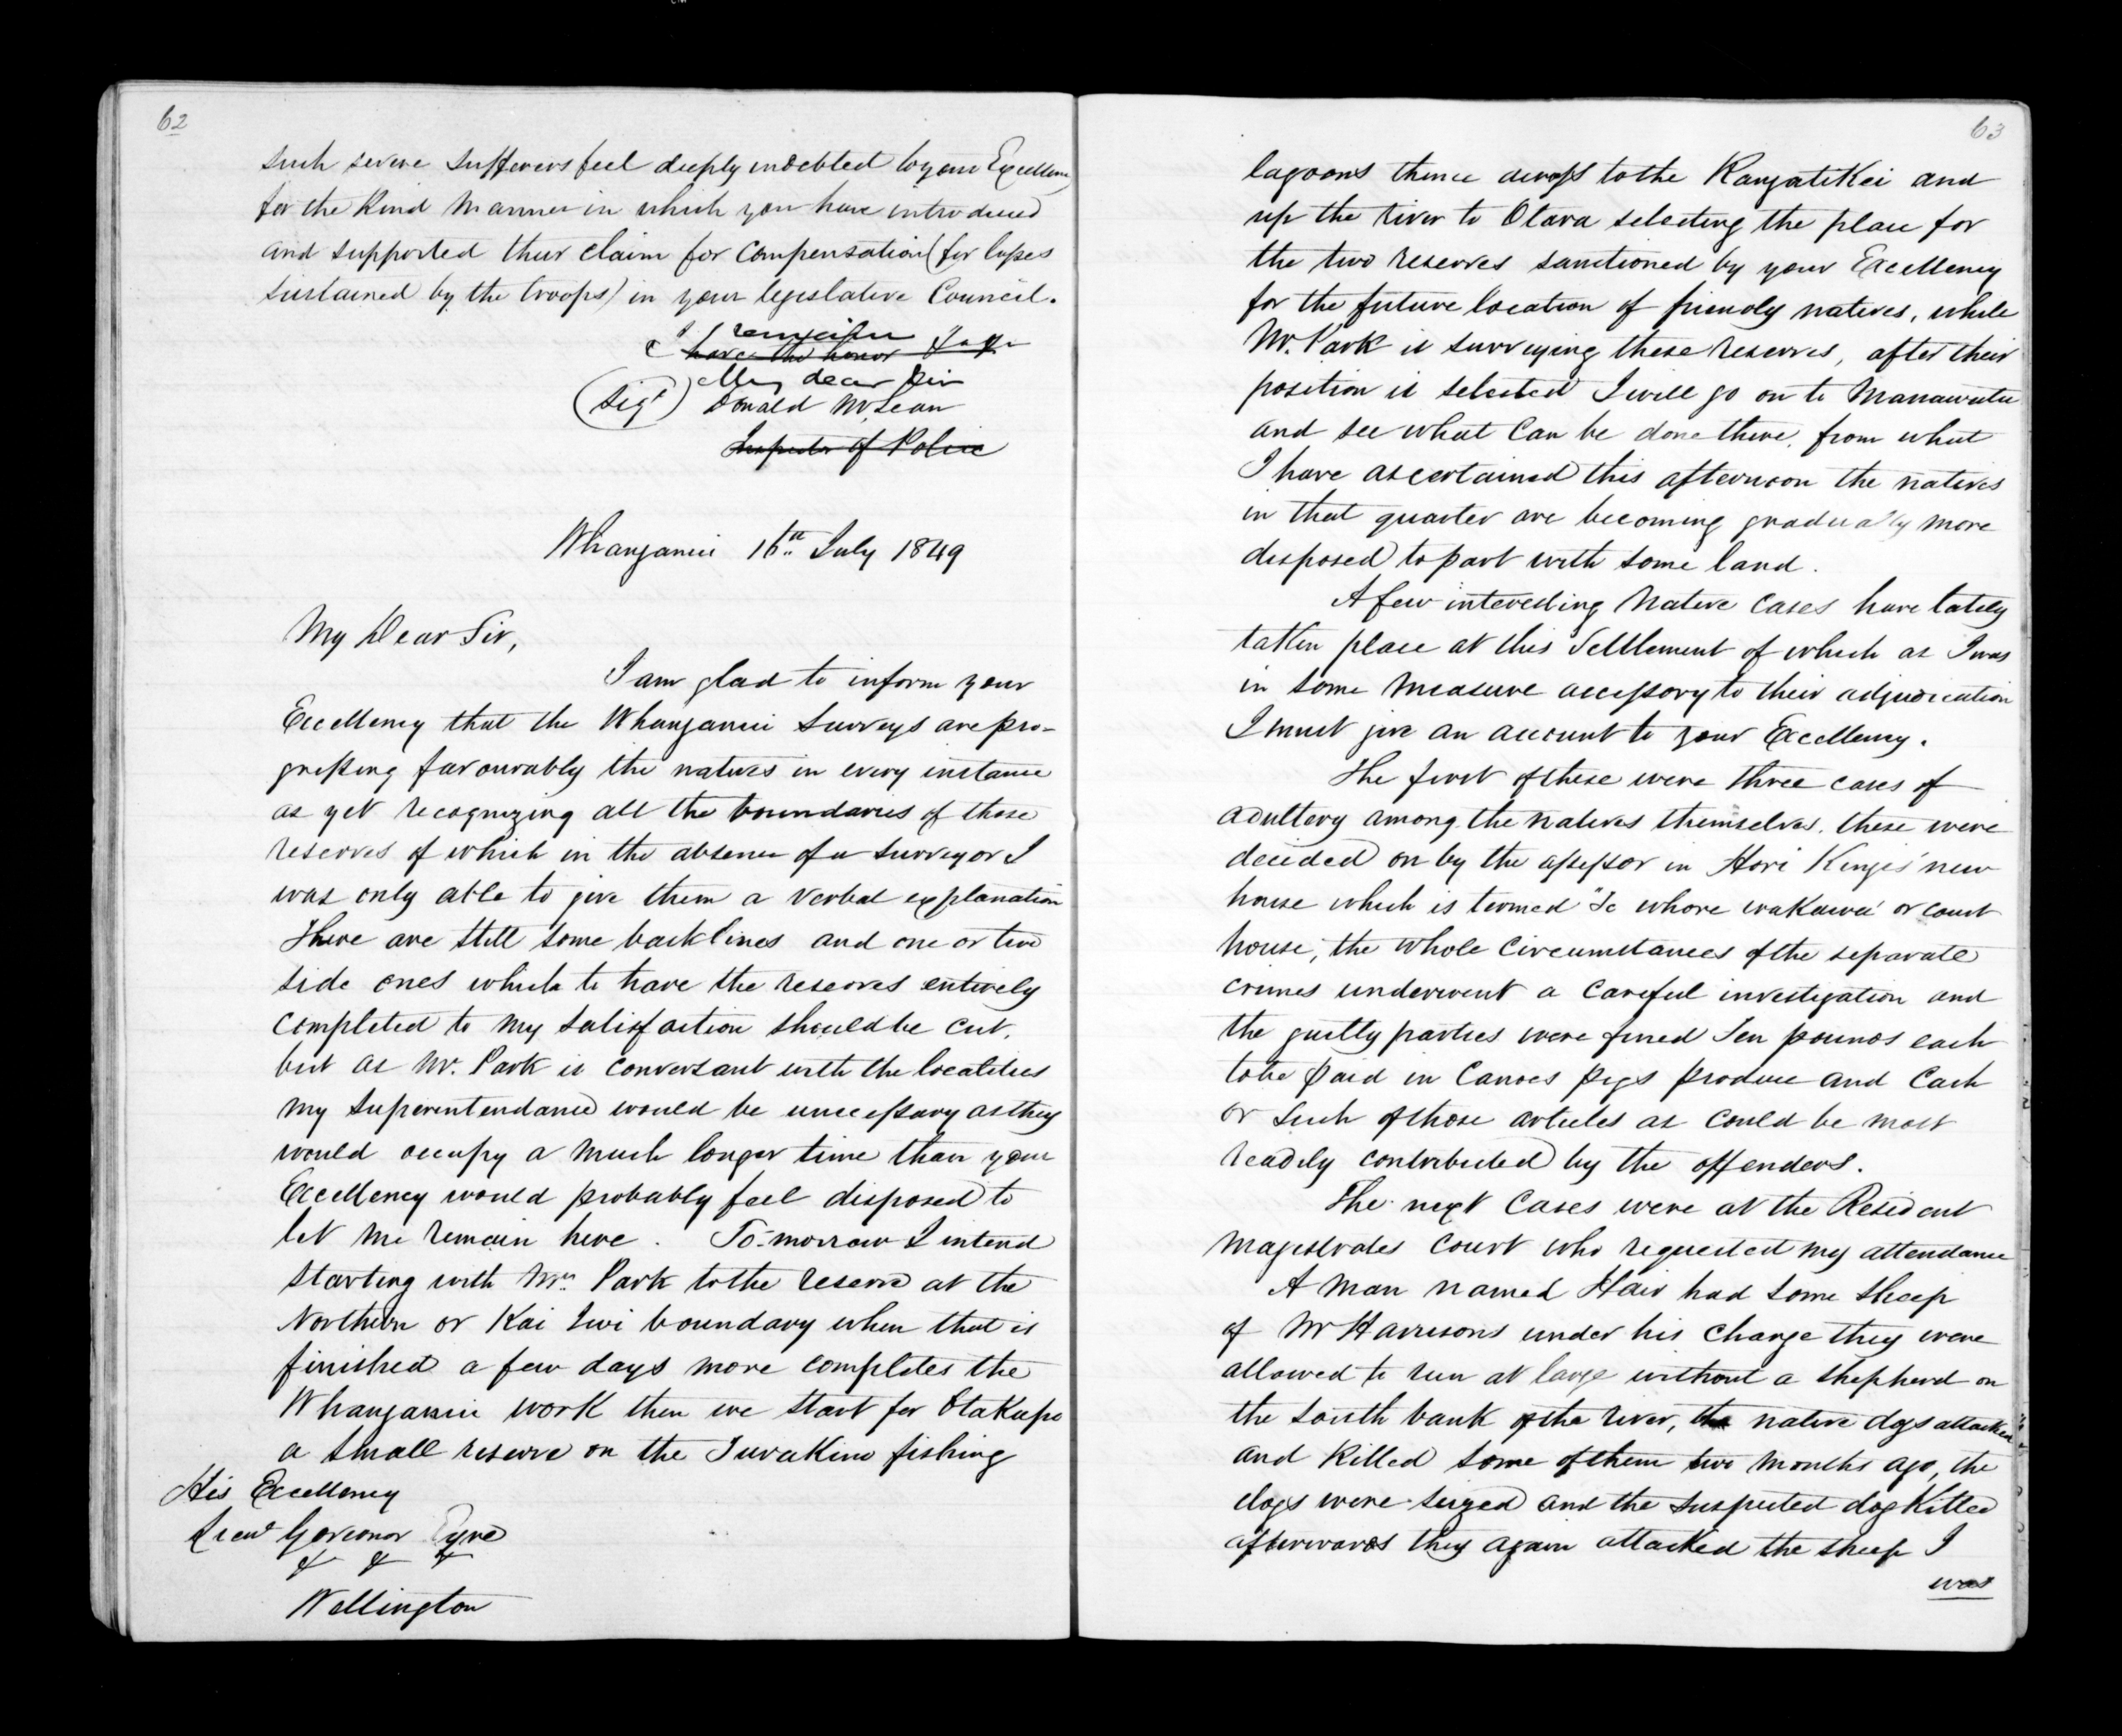 62
such severe sufferers feel deeply indebted to your Excellency
for the Kind Manner in which you have introduced
and supported their claim for compensation (for losses
sustained by the troops) in your legislative Council.
I remain
have the honor
My dear Sir
(Sigd) Donald McLean
Inspector of Police
Whanganui 16th July 1849
My Dear Sir,
I am glad to inform your
Excellency that the Whanganui Surveys are pro-
gressing favourably the natives in every instance
as yet recognizing all the boundaries of those
reserves of which in the absence of a surveyor I
was only able to give them a verbal explanation
There are still some back lines and one or two
side ones which to have the reserves entirely
completed to my satisfaction should be cut,
but as Mr. Park is conversant with the localities
my superintendance would be unnecessary as they
would occupy a much longer time than your
Excellency would probably feel disposed to
let me remain here. To-morrow I intend
starting with Mr. Park to the reserve at the
Northern or Kai Iwi boundary when that is
finished a few days more completes the
Whanganui work then we start for Otakapo
a small reserve on the Turakino fishing
His Excellency
Lieut Governor Eyre
& & &
Wellington
63
lagoons thence across to the Rangatikei and
up the river to Otara selecting the place for
the two reserves sanctioned by your Excellency
for the future location of friendly natives, while
Mr. Park is surveying these reserves, after their
position is selected I will go on to Manawatu
and see what can be done there. from what
I have ascertained this afternoon the natives
in that quarter are becoming gradually more
disposed to part with some land.
A few interesting Native cases have lately
taken place at this Settlement of which as I was
in some measure accessory to their adjudication
I must give an account to your Excellency.
The first of these were three cases of
adultery among the natives themselves. these were
decided on by the assessor in Hori Kingis' new
house which is termed "Te whare wakawa" or court
house; the whole circumstances of the separate
crimes underwent a careful investigation and
the guilty parties were fined Ten pounds each
to be paid in Canoes pigs produce and Cash
or such of those articles as could be most
readily contributed by the offenders.
The next cases were at the Resident
Magistrates court who requested my attendance
A man named Hair had some sheep
of Mr Harrisons under his charge they were
allowed to run at large without a shepherd on
the south bank of the river, the native dogs attacked
and Killed some of them two months ago, the
dogs were seized and the suspected dog Killed
afterwards they again attacked the sheep I
was